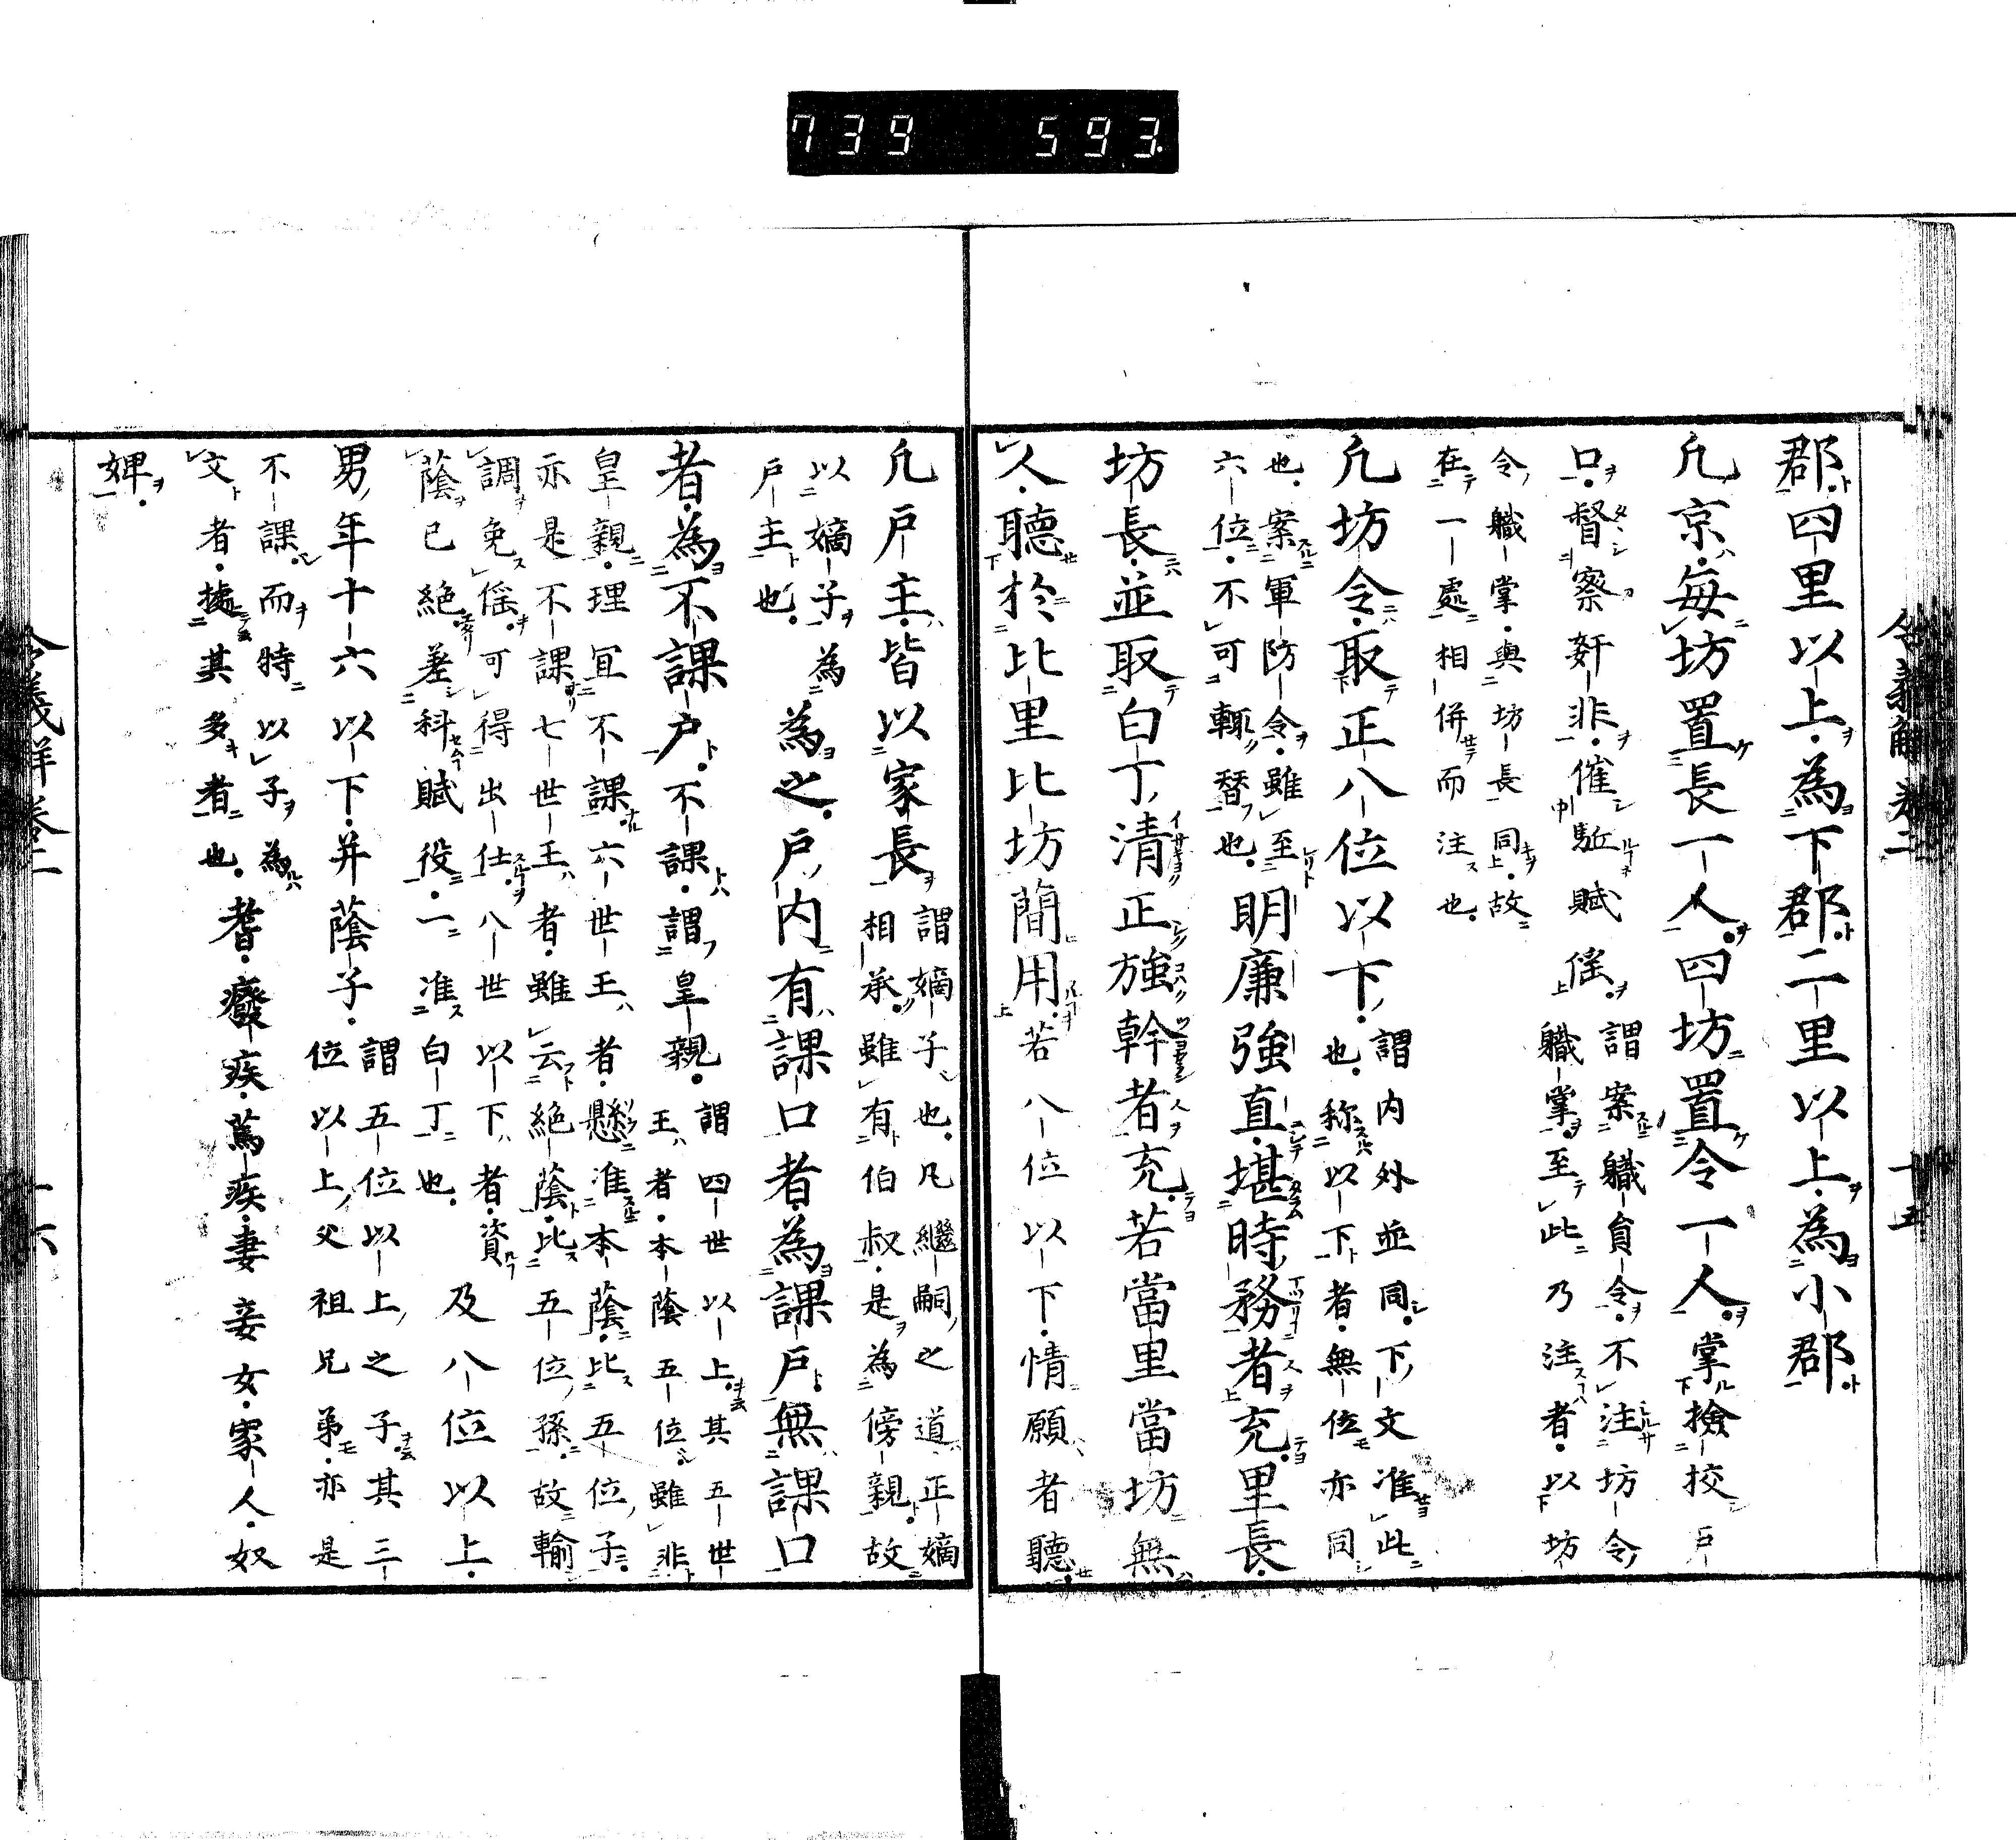 739 593
令義解卷二 十五
郡四里以上為下郡二里以上為小郡
凡京毎坊置長一人四坊置令一人掌撿挍戸
口督察奸非催駈賦徭
謂案職員令不注坊令
職掌至此乃注者以坊
令職掌與坊長同故
在一處相併而注也
凡坊令取正八位以下
謂内外並同下文准此
也称以下者無位亦同
也案軍防令雖至
六位不可輙替也
明廉強直堪時務者充里長
坊長並取白丁清正強幹者充若當里當坊無
人聽於比里比坊簡用若八位以下情願者聽
凡戸主皆以家長
謂嫡子也凡繼嗣之道正嫡
相承雖有伯叔是為傍親故
以嫡子為
戸主也
為之戸内有課口者為課戸無課口
者為不課戸不課謂皇親
謂四世以上其五世
王者本蔭五位雖非
皇親理冝不課六世王者懸准本蔭比五位子
亦是不課七世王者雖云絶蔭比五位孫故輸
調免徭可得出仕八世以下者資
蔭已絶差科賦役一准白丁也
及八位以上
男年十六以下并蔭子
謂五位以上之子其三
位以上父祖兄弟亦是
不課而時以子為
文者據其多者也
耆癈疾篤疾妻妾女家人奴
婢
令義解卷二 十六